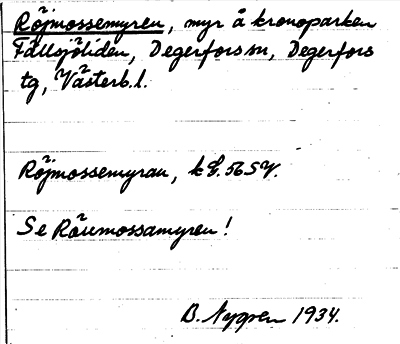 Röjmossemyren, myr å kronoparken
Fällsjöliden, Degerfors sn, Degerfors
tg, Västerb. l.
Röjmossemyran, k bl. 56 SV.
Se Rörmossamyren!
B. Nygren 1934.